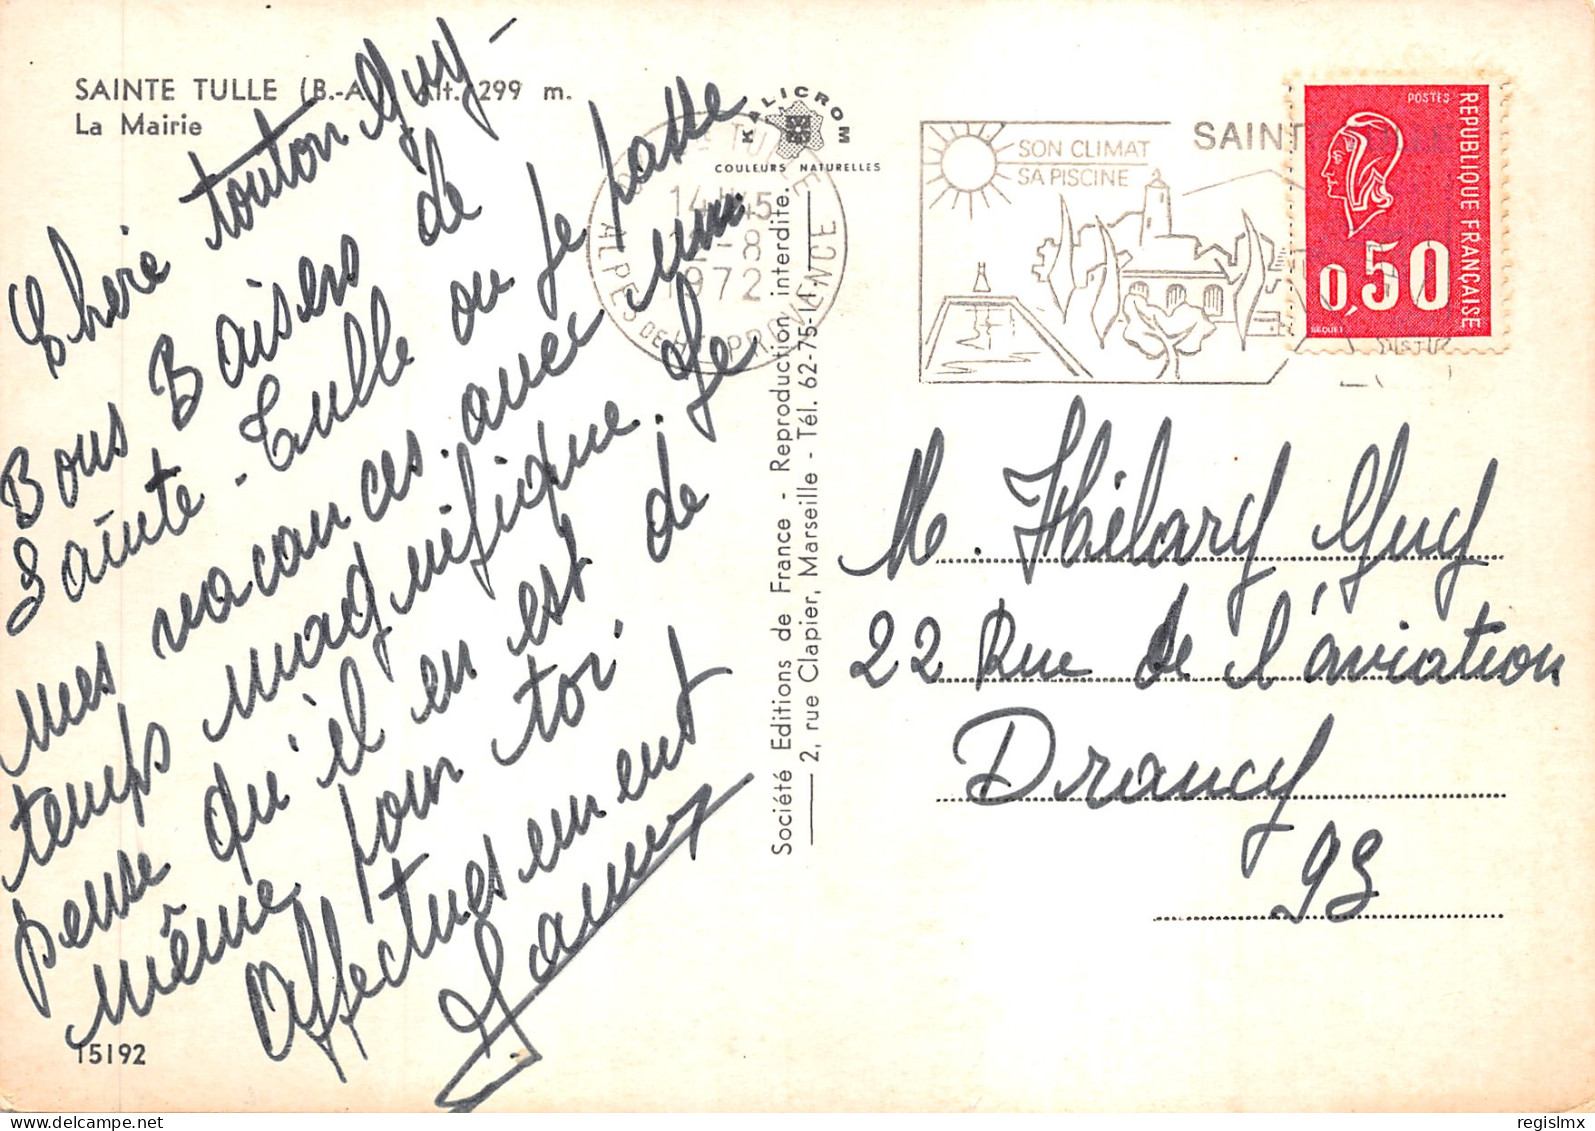 SAINTE TULLE (B.-A Alt. 299 m.
La Mairie
Chere tonton Guy-
Bons Baisers de
Sainte-Tulle ou je passe
mes vacances avec un
temps magnifique. Je
pense qu'il en est de
même pour toi
Affectueusement
15192
KALICROM
COULEURS NATURELLES
Société Editions de France - Reproduction interdite.
2, rue Clapier, Marseille - Tél. 62-75-17.
TULLE
14H45
-8
1972
ALPES DE HTE PROVENCE
SON CLIMAT
SA PISCINE
SAINT
POSTES
REPUBLIQUE FRANÇAISE
0,50
BEQUET
M. Hélary Guy
22 Rue de l'aviation
Drancy
93
regislmx